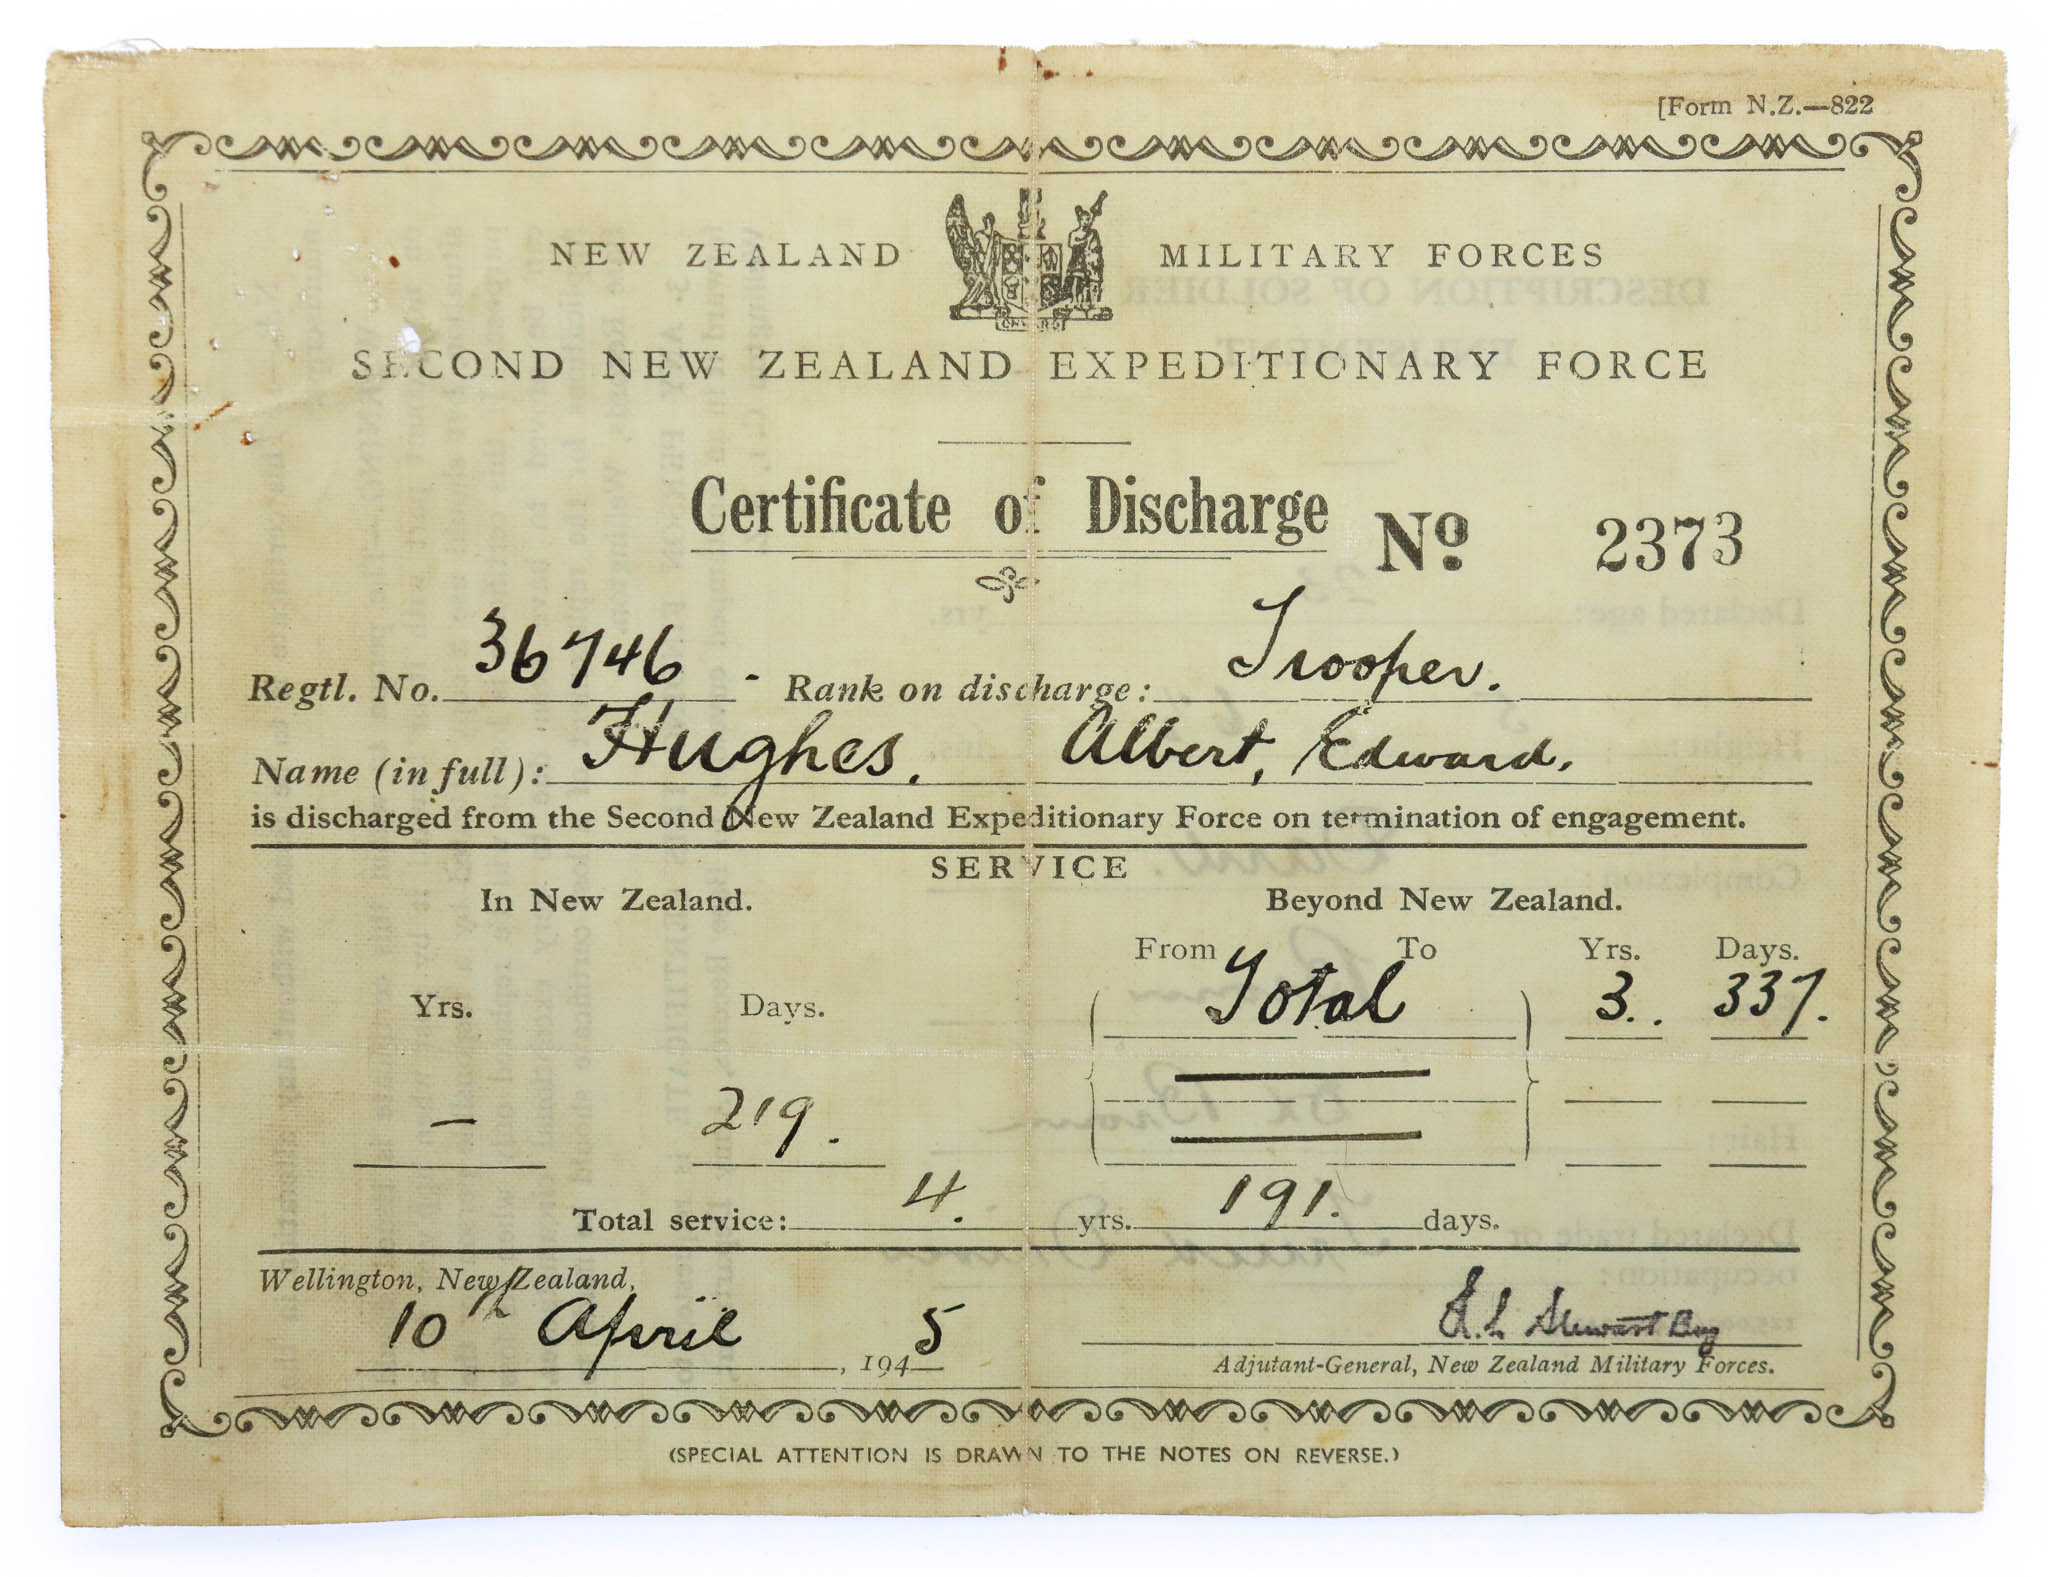 [Form N.Z.—822
NEW ZEALAND MILITARY FORCES
ONWARD
SECOND NEW ZEALAND EXPEDITIONARY FORCE
Certificate of Discharge Nº 2373
Regtl. No. 36746 - Rank on discharge: Trooper.
Name (in full): Hughes. Albert, Edward.
is discharged from the Second New Zealand Expeditionary Force on termination of engagement.
SERVICE
In New Zealand. Beyond New Zealand.
From To Yrs. Days.
Yrs. Days. Total 3.. 337.
— 219.
Total service: 4. yrs. 191. days.
Wellington, New Zealand,
10th April, 1945 Stewart Brig
Adjutant-General, New Zealand Military Forces.
(SPECIAL ATTENTION IS DRAWN TO THE NOTES ON REVERSE.)